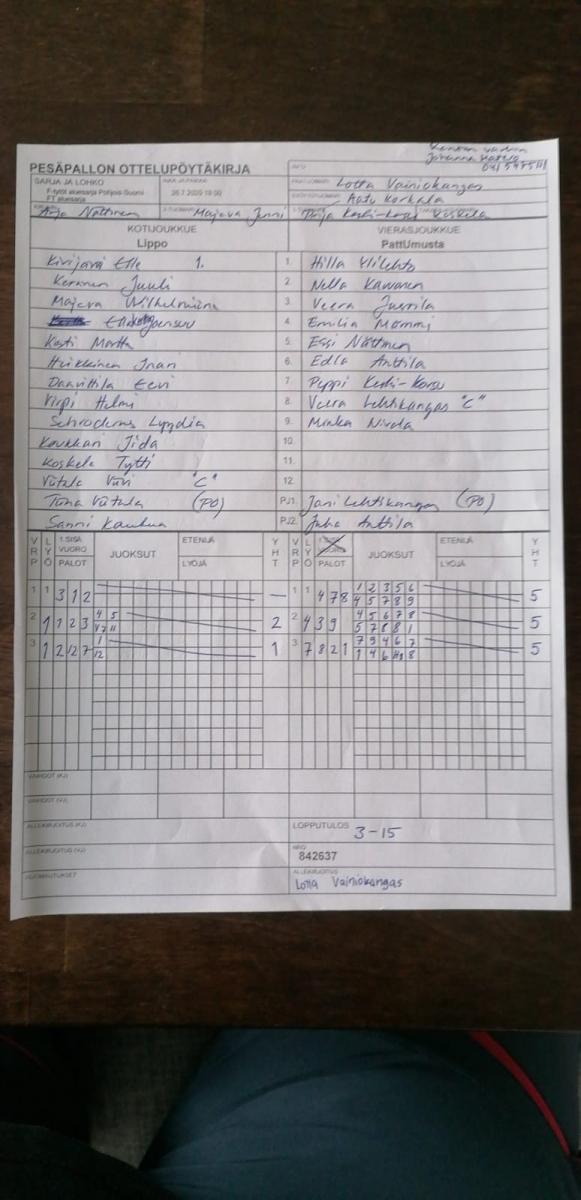 Johanna
PESÄPALLON OTTELUPÖYTÄKIRJA
SARJA JA LOHKO
F-tytöt aluesarja Pohjois-Suomi
FT aluesarja
26.7.2020 18:00
Lotta Vainiokangas
Aatu Korkala
Arja Nättinen Majava Jenni
KOTIJOUKKUE VIERASJOUKKUE
Lippo PattUmusta
Kivijärvi Elle 1. 1. Hilla Ylilehto
Keränen Juuli 2. Nella Kauvanen
Majava Wilhelmiina 3. Veera Juurila
4. Emilia Mömmi
Kosti Martta 5. Essi Nättinen
Heikkinen Inari 6. Edla Anttila
Daavittila Eevi 7. Peppi Kesti-
Virpi Helmi 8. Veera Lehtikangas "C"
Lyydia 9. Minka Nivala
Koukkari Iida 10.
Koskela Tytti 11.
Viitala Vivi "C" 12.
Tiina Viitala (PO) PJ1. Jani Lehtikangas (PO)
Sanni PJ2. Juha Anttila
VRP LYÖ 1.SISÄ VUORO PALOT JUOKSUT ETENIJÄ LYÖJÄ YHT VRP LYÖ PALOT JUOKSUT ETENIJÄ LYÖJÄ YHT
1 1 3 1 2 — 1 1 4 7 8 1 2 3 5 6 5
4 5 7 8 9
2 1 1 2 3 4 5 2 2 4 3 9 4 5 6 7 8 5
4 7 11 5 7 8 8 1
3 1 2 12 7 1 1 3 7 8 2 1 7 9 4 6 7 5
12
VAIHDOT (KJ)
VAIHDOT (VJ)
ALLEKIRJOITUS (KJ) LOPPUTULOS 3-15
ALLEKIRJOITUS (VJ) NRO
842637
HUOMAUTUKSET ALLEKIRJOITUS
Lotta Vainiokangas